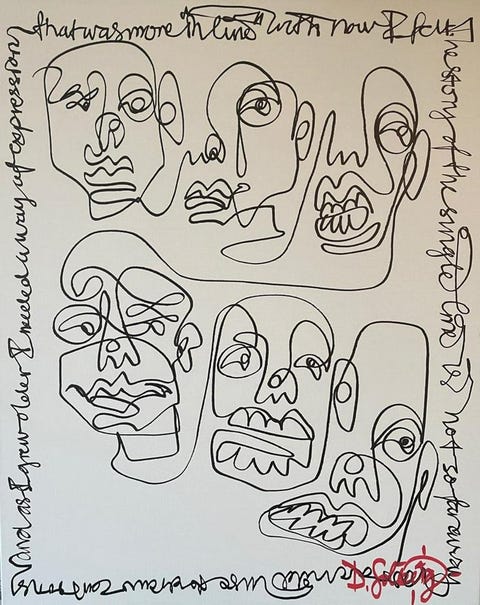 The story of the single line is not so far away
used to draw cartoons
and as I grew older I needed a way of expression
that was more "in line" with how I felt